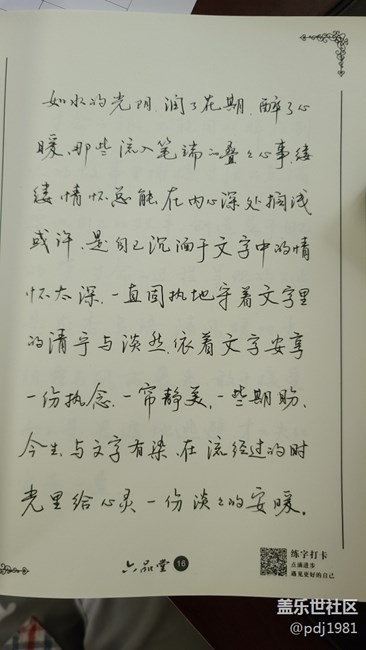 如水的光阴.润了花期.醉了心
暖.那些流入笔端的叠々心事.缕
缕情怀总能在内心深处搁浅
或许.是自己沉湎于文字中的情
怀太深.一直固执地守着文字里
的清宁与淡然.依着文字安享
一份执念.一帘静美.一些期盼.
今生.与文字有染.在流经过的时
光里给心灵一份淡々的安暖。
六品堂 16
练字打卡
点滴进步
遇见更好的自己
盖乐世社区
@pdj1981